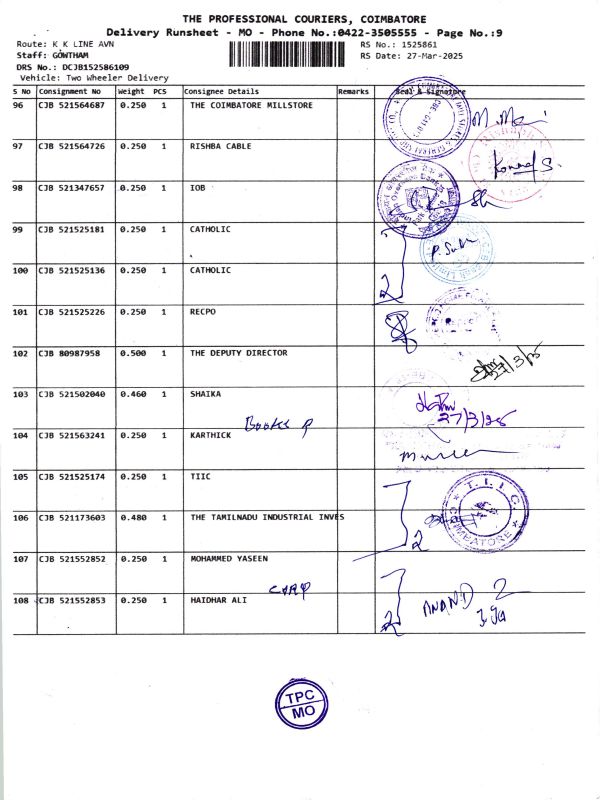 THE PROFESSIONAL COURIERS, COIMBATORE
Delivery Runsheet - MO - Phone No.:0422-3505555 - Page No.:9
Route: K K LINE AVN
RS No.: 1525861
Staff: GOWTHAM
RS Date: 27-Mar-2025
DRS No.: DCJB152586109
Vehicle: Two Wheeler Delivery
S No Consignment No Weight PCS Consignee Details Remarks Seal & Signature
96 CJB 521564687 0.250 1 THE COIMBATORE MILLSTORE
97 CJB 521564726 0.250 1 RISHBA CABLE
98 CJB 521347657 0.250 1 IOB
99 CJB 521525181 0.250 1 CATHOLIC
100 CJB 521525136 0.250 1 CATHOLIC
2
101 CJB 521525226 0.250 1 RECPO
102 CJB 80987958 0.500 1 THE DEPUTY DIRECTOR
27/3/25
103 CJB 521502040 0.460 1 SHAIKA
27/3/25
104 CJB 521563241 0.250 1 KARTHICK
105 CJB 521525174 0.250 1 TIIC
T.I.I.C.
COIMBATORE
106 CJB 521173603 0.480 1 THE TAMILNADU INDUSTRIAL INVES
2
107 CJB 521552852 0.250 1 MOHAMMED YASEEN
108 CJB 521552853 0.250 1 HAIDHAR ALI
2
ANAND
TPC
MO